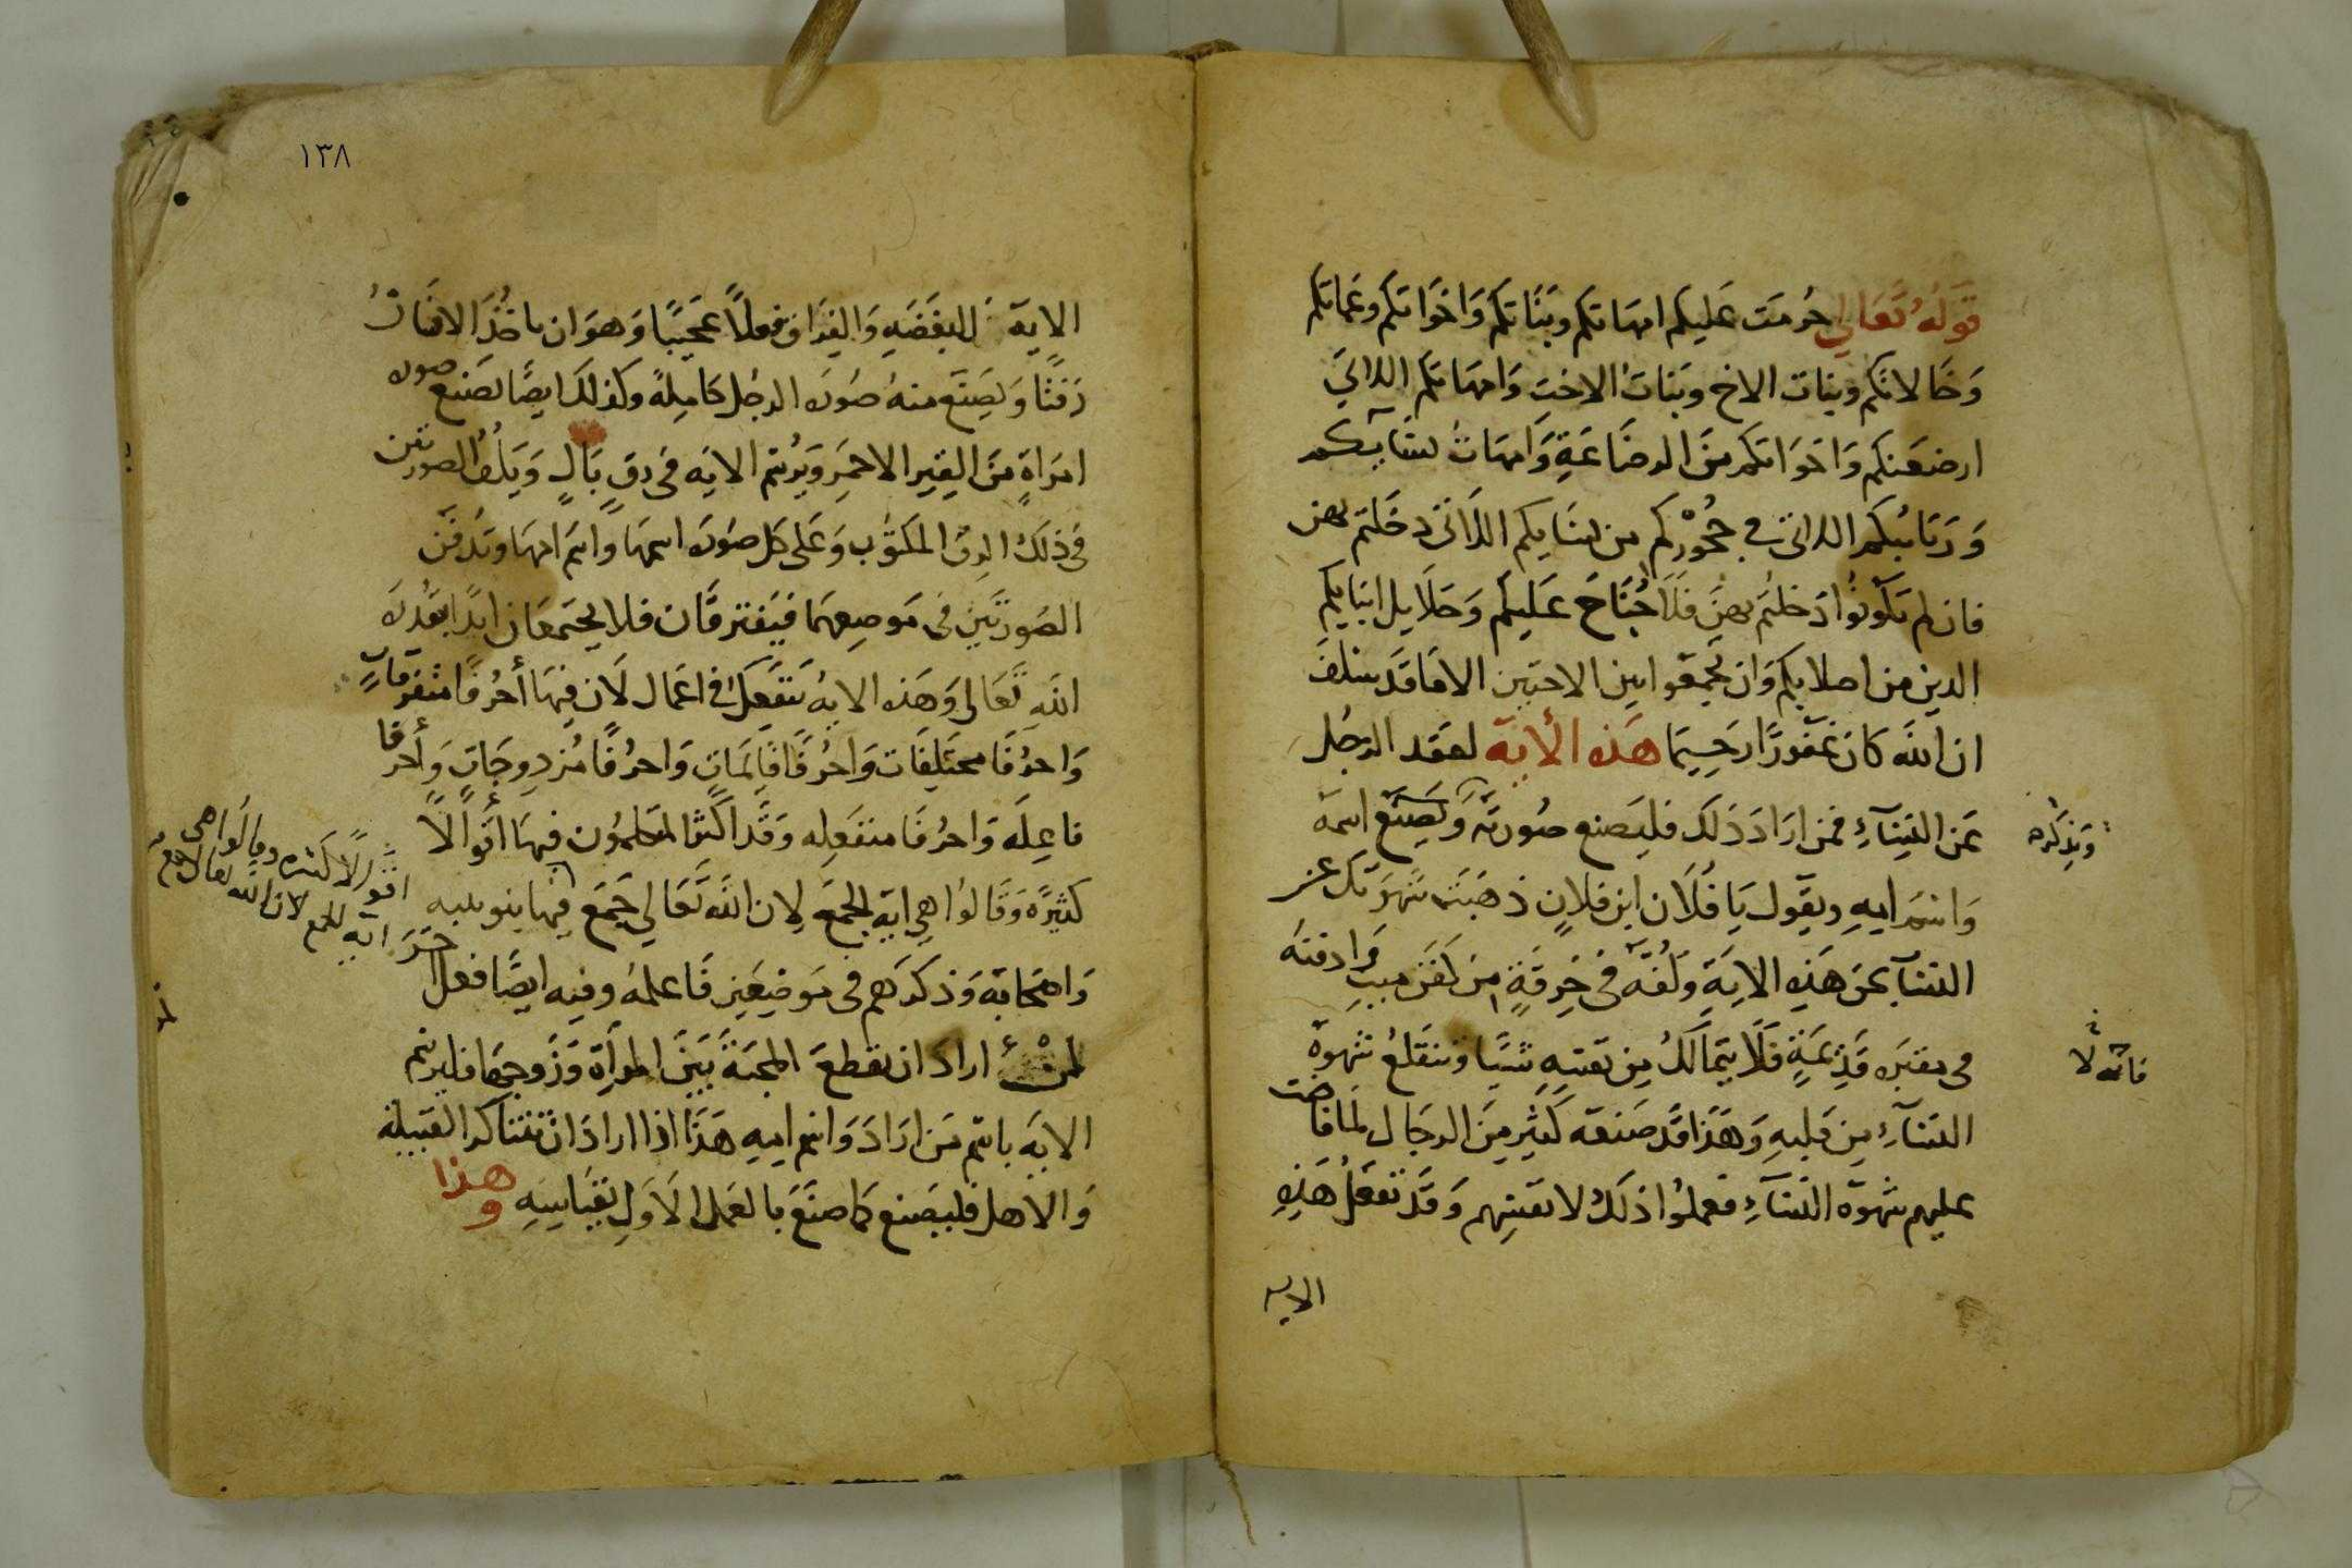 قوله تعالي حرمت عليكم امهاتكم وبناتكم واخواتكم وعماتكم
وخالاتكم وبنات الاخ وبنات الاخت وامهاتكم اللاتي
ارضعنكم واخواتكم من الرضاعة وامهات نسآيكم
وربائبكم اللاتي في حجوركم من نسايكم اللاتي دخلتم بهن
فان لم تكونوا دخلتم بهن فلا جناح عليكم وحلايل ابنايكم
الدين من اصلابكم وان تجمعوا بين الاختين الا ما قد سلف
ان الله كان غفورا رحيما هذه الأية لعقد الرجل
عن النسآء فمن اراد ذلك فليصنع صورته ويصنع اسمه
ويذكره
واسم ابيه ويقول يا فلان ابن فلان ذهبت شهوتك عن
النسآ بحق هذه الاية ولفه في خرقة من كفن ميت وادفنه
في مقبره قديمة فلا يتمالك من نفسه شيا وتنقلع شهوة
فانه لا
النسآء من قلبه وهذا قد صنعه كثير من الرجال لما فاضت
عليهم شهوة النسآء فعملوا ذلك لانفسهم وقد تفعل هذه
الايه
١٣٨
الاية للبغضه والفراق فعلا عجيبا وهو ان ياخذ الانسان
زفتا ويصنع منه صورة الرجل كاملة وكذلك ايضا تصنع صوره
امراة من القير الاحمر ويرتم الايه في رق بال ويلف الصورتين
في ذلك الرق المكتوب وعلى كل صورة اسمها واسم امها وتدفن
الصورتين في موضعهما فيفترقان فلا يجتمعان ابدا بقدرة
الله تعالى وهذه الاية تنفعل في اعمال لان فيها أحرفا متفرقات
واحرفا مختلفات واحرفا قايمات واحرفا مزدوجات وأحرفا
فاعله واحرفا منفعله وقد اكثر المتكلمون فيها أقوالا
كثيره وقالوا هي اية الجمع لان الله تعالي جمع فيها بنو
اقوالا كثيره وقالوا هي
اية الجمع لان الله تعالى
واصحابه وذكرهم في موضعين فاعلمه وفيه ايضا فعل
لمن اراد ان يقطع المحبة بين المرأة وزوجها فليرتم
الايه باسم من اراد واسم ابيه هذا اذا اراد ان تتناكر القبيلة
والاهل فليصنع كما صنع بالعمل الاول بقياسه
وهذا